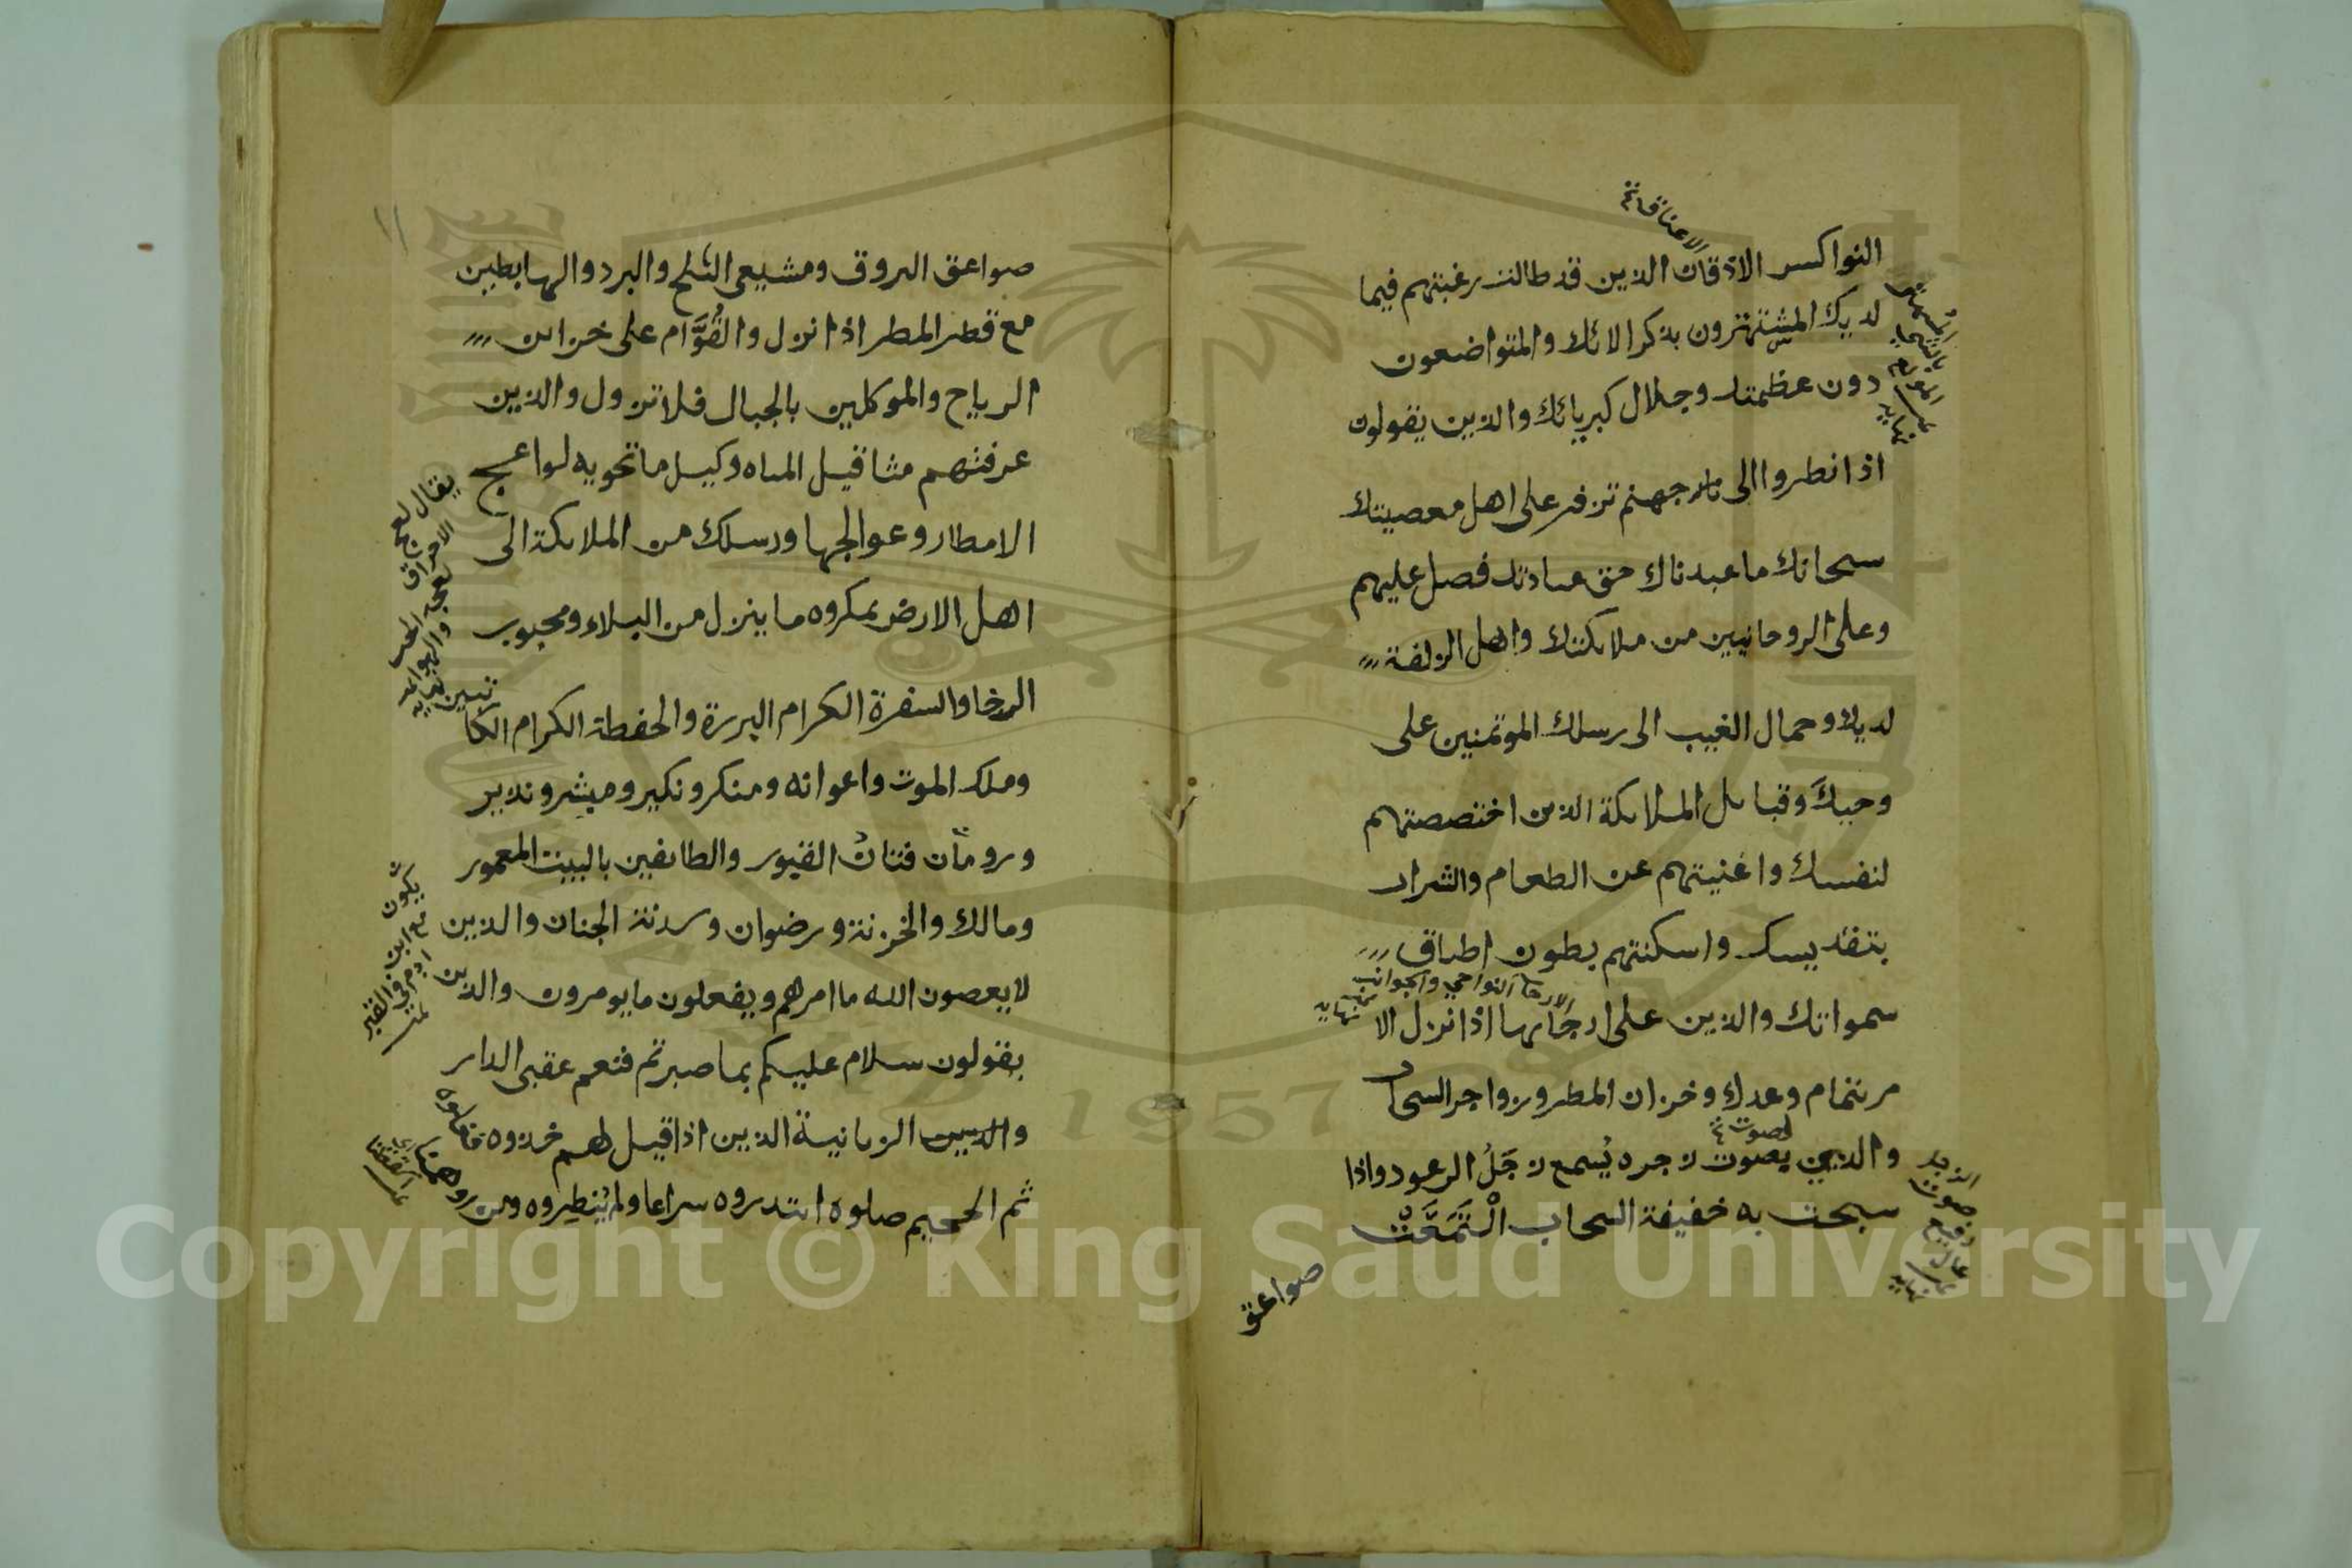 الاعناق نخ
النواكس الاذقان الذين قد طالت رغبتهم فيما
لديك المشتهترون بذكر الائك والمتواضعون
دون عظمتك وجلال كبريائك والذين يقولون
اذا نظروا الى نار جهنم تزفر على اهل معصيتك
سبحانك ما عبدناك حق عبادتك فصل عليهم
وعلى الروحانيين من ملائكتك واهل الزلفة
لديك وحمال الغيب الى رسلك الموتمنين على
وحيك وقبائل الملائكة الذين اختصصتهم
لنفسك واغنيتهم عن الطعام والشراب
بتقديسك واسكنتهم بطون اطباق
الارجا النواحي والجوانب نهايه
سمواتك والذين على ارجائها اذا نزل الا
مر بتمام وعدك وخزان المطر وزواجر السحاب
لصوت نخ
والذي بصوت زجره يُسمع زجَلُ الرعود واذا
سبحت به خفيفة السحاب الْتَمَعَتْ
الزجل صوت رفيع عال نهايه
صواعق
١١
صواعق البروق ومشيعى الثلج والبرد والهابطين
مع قطر المطر اذا نزل والقُوَّام على خزائن
الرياح والموكلين بالجبال فلا تزول والذين
عرفتهم مثاقيل المياه وكيل ما تحويه لواعج
الامطار وعوالجها ورسلك من الملائكة الى
اهل الارض بمكروه ما ينزل من البلاء ومحبوب
الرخا والسفرة الكرام البررة والحفظة الكرام الكا
تبين
وملك الموت واعوانه ومنكر ونكير ومبشر ونذير
ورومان فتان القبور والطائفين بالبيت المعمور
ومالك والخزنة ورضوان وسدنة الجنان والذين
لا يعصون الله ما امرهم ويفعلون ما يومرون والذين
يقولون سلام عليكم بما صبرتم فنعم عقبى الدار
والذين الزبانية الذين اذا قيل لهم خذوه فغلوه
ثم الجحيم صلوه ابتدروه سراعا ولم يُنظِروه ومن
يقال لعج
يكون مع ابن ادم في القبر